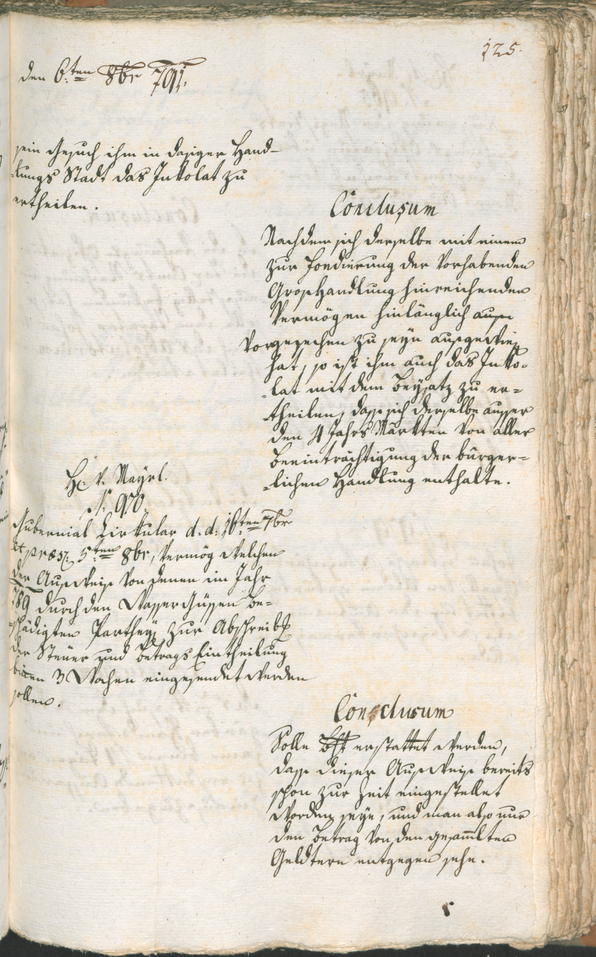 125.
den 6ten 8br 791.
sein Gesuch ihm in dasiger Hand-
lungs Stadt das Inkolat zu
ertheilen.
Conclusum
Nachdem sich derselbe mit einem
zur Fondierung der vorhabenden
Großhandlung hinreichenden
Vermögen hinlänglich
vorgesehen zu seyn ausgewiesen
hat, so ist ihm auch das Inko-
lat mit dem Beysatz zu er-
theilen, dass sich derselbe ausser
den 4 Jahrs Märkten von aller
Beeinträchtigung der bürger-
lichen Handlung enthalte.
H. v. Mayrl.
N. 970
Gubernial Cirkular d. d. 16ten 7br
et präs. 5ten 8br, vermög welchen
der Ausweise von denen im Jahr
789 durch den Wassergüssen be-
schädigten Partheyen zur Abschreib
der Steuer und Betrags Eintheilung
binnen 3 Wochen eingesendet werden
sollen.
Conclusum
Solle erstattet werden,
dass dieser Ausweise bereits
schon zur Zeit eingestellet
worden seye, und man also nur
den Betrag von den gesammlten
Geldern entgegen sehe.